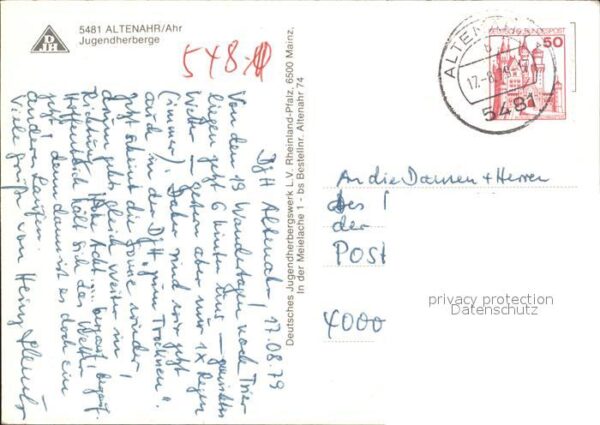 5481 ALTENAHR/Ahr
Jugendherberge
DJH
548
DJH Altenahr, 17.08.79
Von den 19 Wandertagen nach Trier
liegen jetzt 6 hinter uns –
Wetter – gestern aber nur 1x Regen
(immer). Daher sind wir jetzt
auch in der DJH "zum Trocknen".
Jetzt scheint die Sonne wieder!
dann geht's gleich weiter in
Richtung Hohe Acht ... bergauf, bergauf.
Hoffentlich hält sich das Wetter
jetzt, denn dann ist es doch ein
anderes Laufen.
Viele Grüße von Heinz
Deutsches Jugendherbergswerk L.V. Rheinland-Pfalz, 6500 Mainz,
In der Meielache 1 - bs Bestellnr. Altenahr 74
DEUTSCHE BUNDESPOST
50
ALTENAHR
17.-8.79
5481
An die Damen + Herren
des
der
POST
4000
privacy protection
Datenschutz